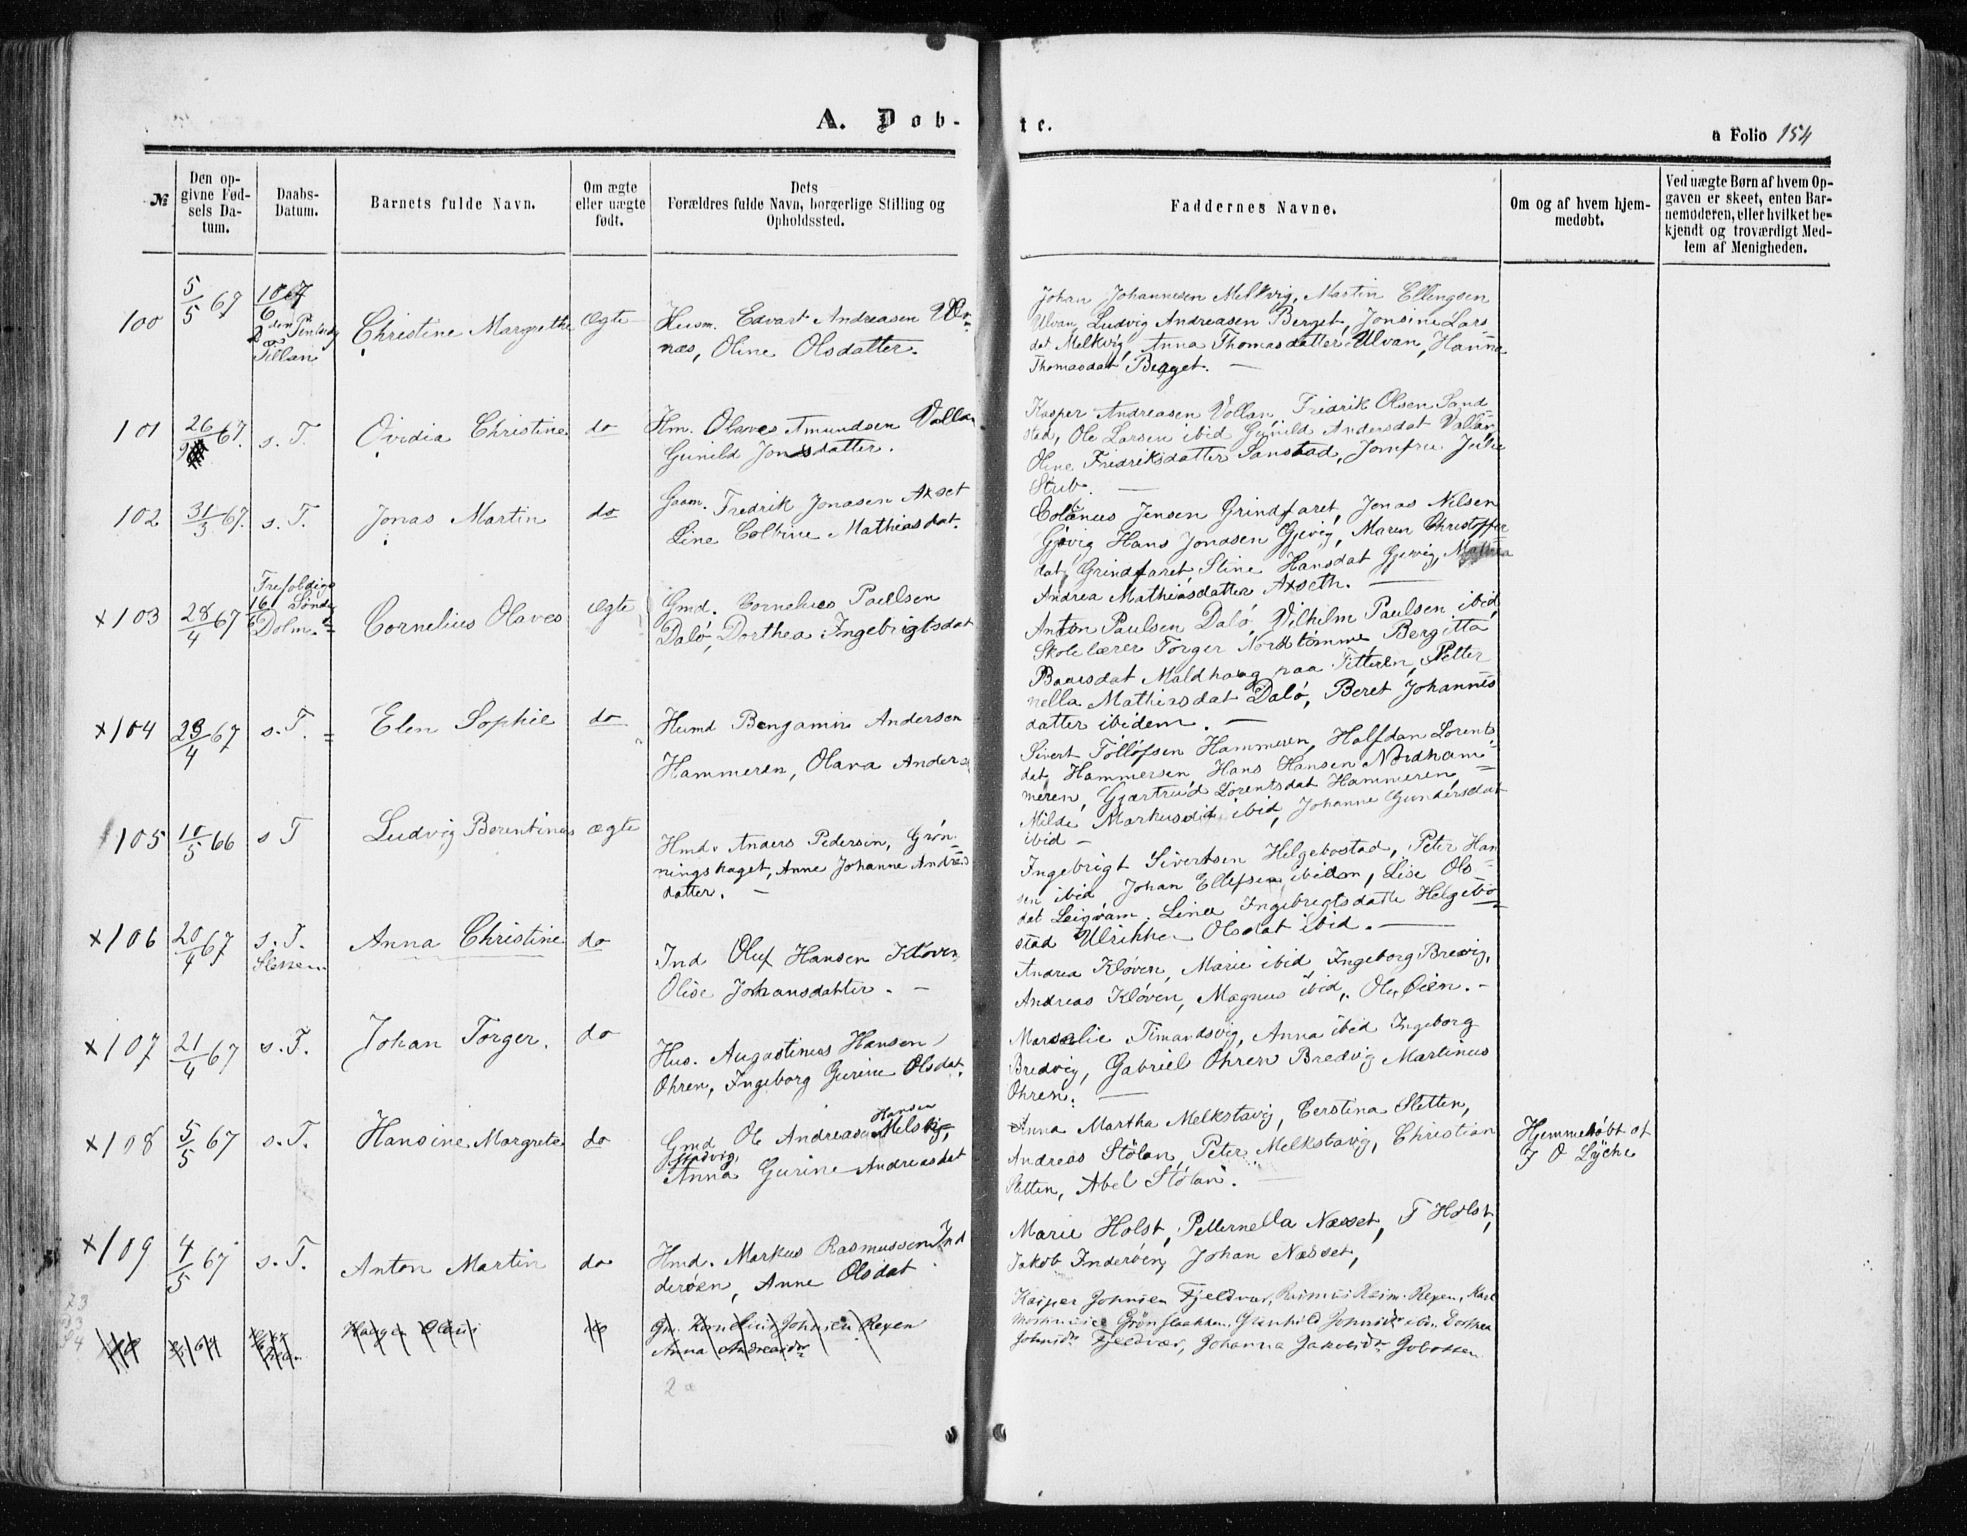 A. Døb-
te.
a Folio 154
№
Den op-
givne Fød-
sels Da-
tum.
Daabs-
Datum.
Barnets fulde Navn.
Om ægte
eller uægte
født.
Dets
Forældres fulde Navn, borgerlige Stilling og
Opholdssted.
Faddernes Navne.
Om og af hvem hjem-
medøbt.
Ved uægte Børn af hvem Op-
gaven er skeet, enten Bar-
nemoderen, eller hvilket be-
kjendt og troværdigt Med-
lem af Menigheden.
100
5/5 67
10/6 67
2den Pintsedg
Fillan
Christine Margrethe
Ægte
Husm. Edvart Andreasen
næs, Oline Olsdatter.
Johan Johannesen Melkvig, Martin Ellingsen
Ulvan, Ludvig Andreasen Berget, Jonsine Lars-
dat Melkvig, Anna Thomasdatter Ulvan, Hanna
Thomasdat Berget. —
101
26/ 67.
s. T.
Ovidia Christine
do
Hm. Olaves Amundsen Vollan
Gunild Jonsdatter.
Kasper Andreasen Vollan, Fridrik Olsen Sand-
sted, Ole Larsen ibid Gunild Andersdat Vollan,
Oline Fredriksdatter Sanstad, Jomfru Julie
Stub. —
102
31/3 67.
s. T.
Jonas Martin
do
Gaam. Fredrik Jonasen Axset
Line Colbine Mathiasdat.
Colbanus Jensen Grindfaret, Jonas Nilsen
Gjevig Hans Jonasen Gjevig, Maren Christoffer
dat, Grindfaret, Stine Hansdat Gjevig, Mathea
Andrea Mathiasdatter Axseth. —
x103
28/4 67
Trefoldigs
16/6 Sønd
Dolm
Cornelius Olaves
Ægte
Gmd. Cornelius Paulsen
Dalø, Dorthea Ingebrigtsdat
Anton Paulsen Dalø, Vilhelm Paulsen ibid,
Skolelærer Torger Nordtømme Bergitta
Baarsdat Maldhaug paa Titteren, Petter-
nella Mathiasdat Dalø, Beret Johannes
datter ibidem. —
x104
23/4 67
s. T.
Elen Sophie
do
Husmd Bengamin Andersen
Hammeren, Olava Anders
Sivert Tølløfsen Hammeren, Halfdan Lorents
dat, Hammersen, Hans Hansen Nordham-
meren, Gjærtrud Lorentsdat Hammeren,
Milde Markusdat ibid, Johanne Gundersdat
ibid —
105
10/5 66
s T
Ludvig Berentinus
ægte
Hmd. Anders Pedersen, Grøn-
ningshaget, Anne Johanne Andreas
datter. —
Ingebrigt Sivertsen Helgebostad, Peter Han-
sen ibid, Johan Ellefsen ibidem, Lise Ols-
dat Leigvam. Line Ingebrigtsdatte Helgebo-
stad Ulrikke Olsdat ibid. —
x106
20/4 67
s. T.
Anna Christine
do
Ind Oluf Hansen Kløven
Olise Johansdatter. —
Andrea Kløven, Marie ibid Ingeborg Bredvig,
Andreas Kløven, Magnus ibid, Ole Øien. —
x107
21/4 67
s. T.
Johan Torger.
do
Hus. Augustinus Hansen
Ohren, Ingeborg Gurine Olsdat.
Marselie Timandsvig, Anna ibid Ingeborg
Bredvig, Gabriel Ohren Bredvig Martinus
Ohren. —
x108
5/5 67
s. T.
Hansine Margrete
do
Hansen
Gmd Ole Andreas
Anna Gurine Andreasdat
Anna Martha Melkstavig, Cerstina Sletten,
Andreas Stølan, Peter Melkstavig, Christian
Sletten, Abel Stølan. —
Hjemmedøbt af
J O Lyche
x109
4/5 67
s. T.
Anton Martin
do
Hmd. Markus Rasmussen Ind
derøen, Anne Olsdat
Marie Holst, Petternella Næsset, T Holst,
Jakob Inderøen, Johan Næsset,
Gm. Kornelius Johnsen Rexen
Anna Andreasdr
Kasper Johnsen Fjeldvær, Rexen, Karl
Grønflakken, Gunhild Johnsdr ibid. Dorthea
Johnsdr Fjeldvær, Johanna Jakobsdr